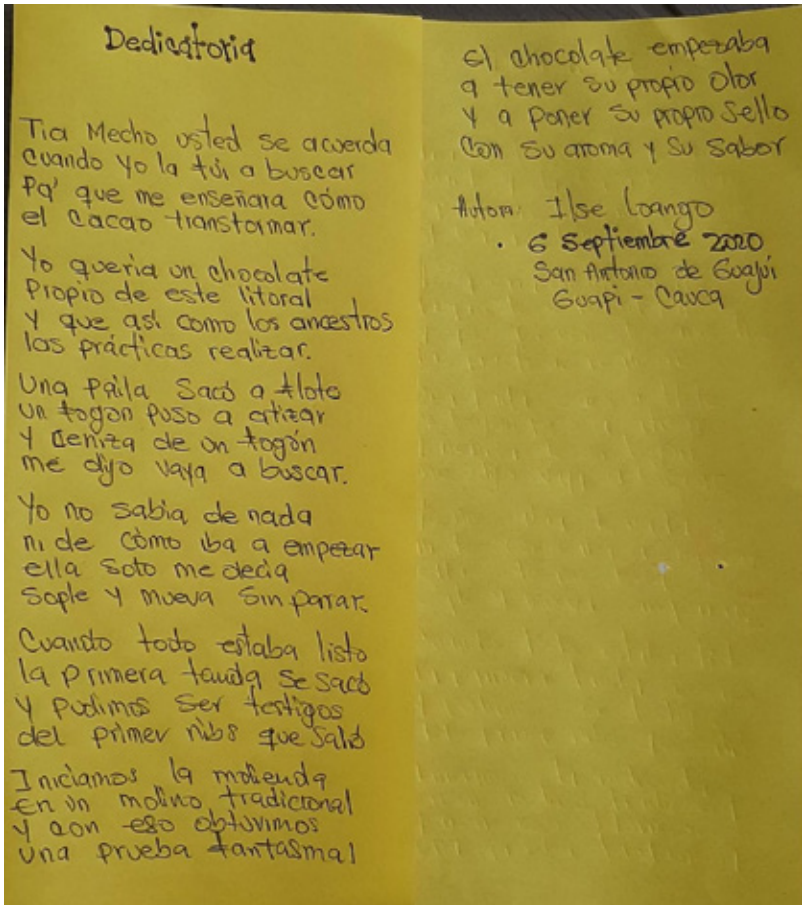 Dedicatoria
Tia Mecho usted se acuerda
cuando yo la fui a buscar
Pa' que me enseñara cómo
el cacao transformar.
Yo queria un chocolate
Propio de este litoral
Y que así como los ancestros
las prácticas realizar.
Una Paila Sacó a flote
un fogon puso a atizar
Y ceniza de un fogón
me dijo vaya a buscar.
Yo no sabia de nada
ni de cómo iba a empezar
ella solo me decia
Sople y mueva Sin parar.
Cuando todo estaba listo
la primera tanda se sacó
y pudimos ser testigos
del primer nibs que salió
Iniciamos la molienda
en un molino tradicional
y con eso obtuvimos
una prueba fantasmal
El chocolate empezaba
a tener su propio olor
Y a poner su propio sello
Con su aroma y su sabor
Autora: Ilse Loango
. 6 Septiembre 2020
San Antonio de Guajuí
Guapi - Cauca